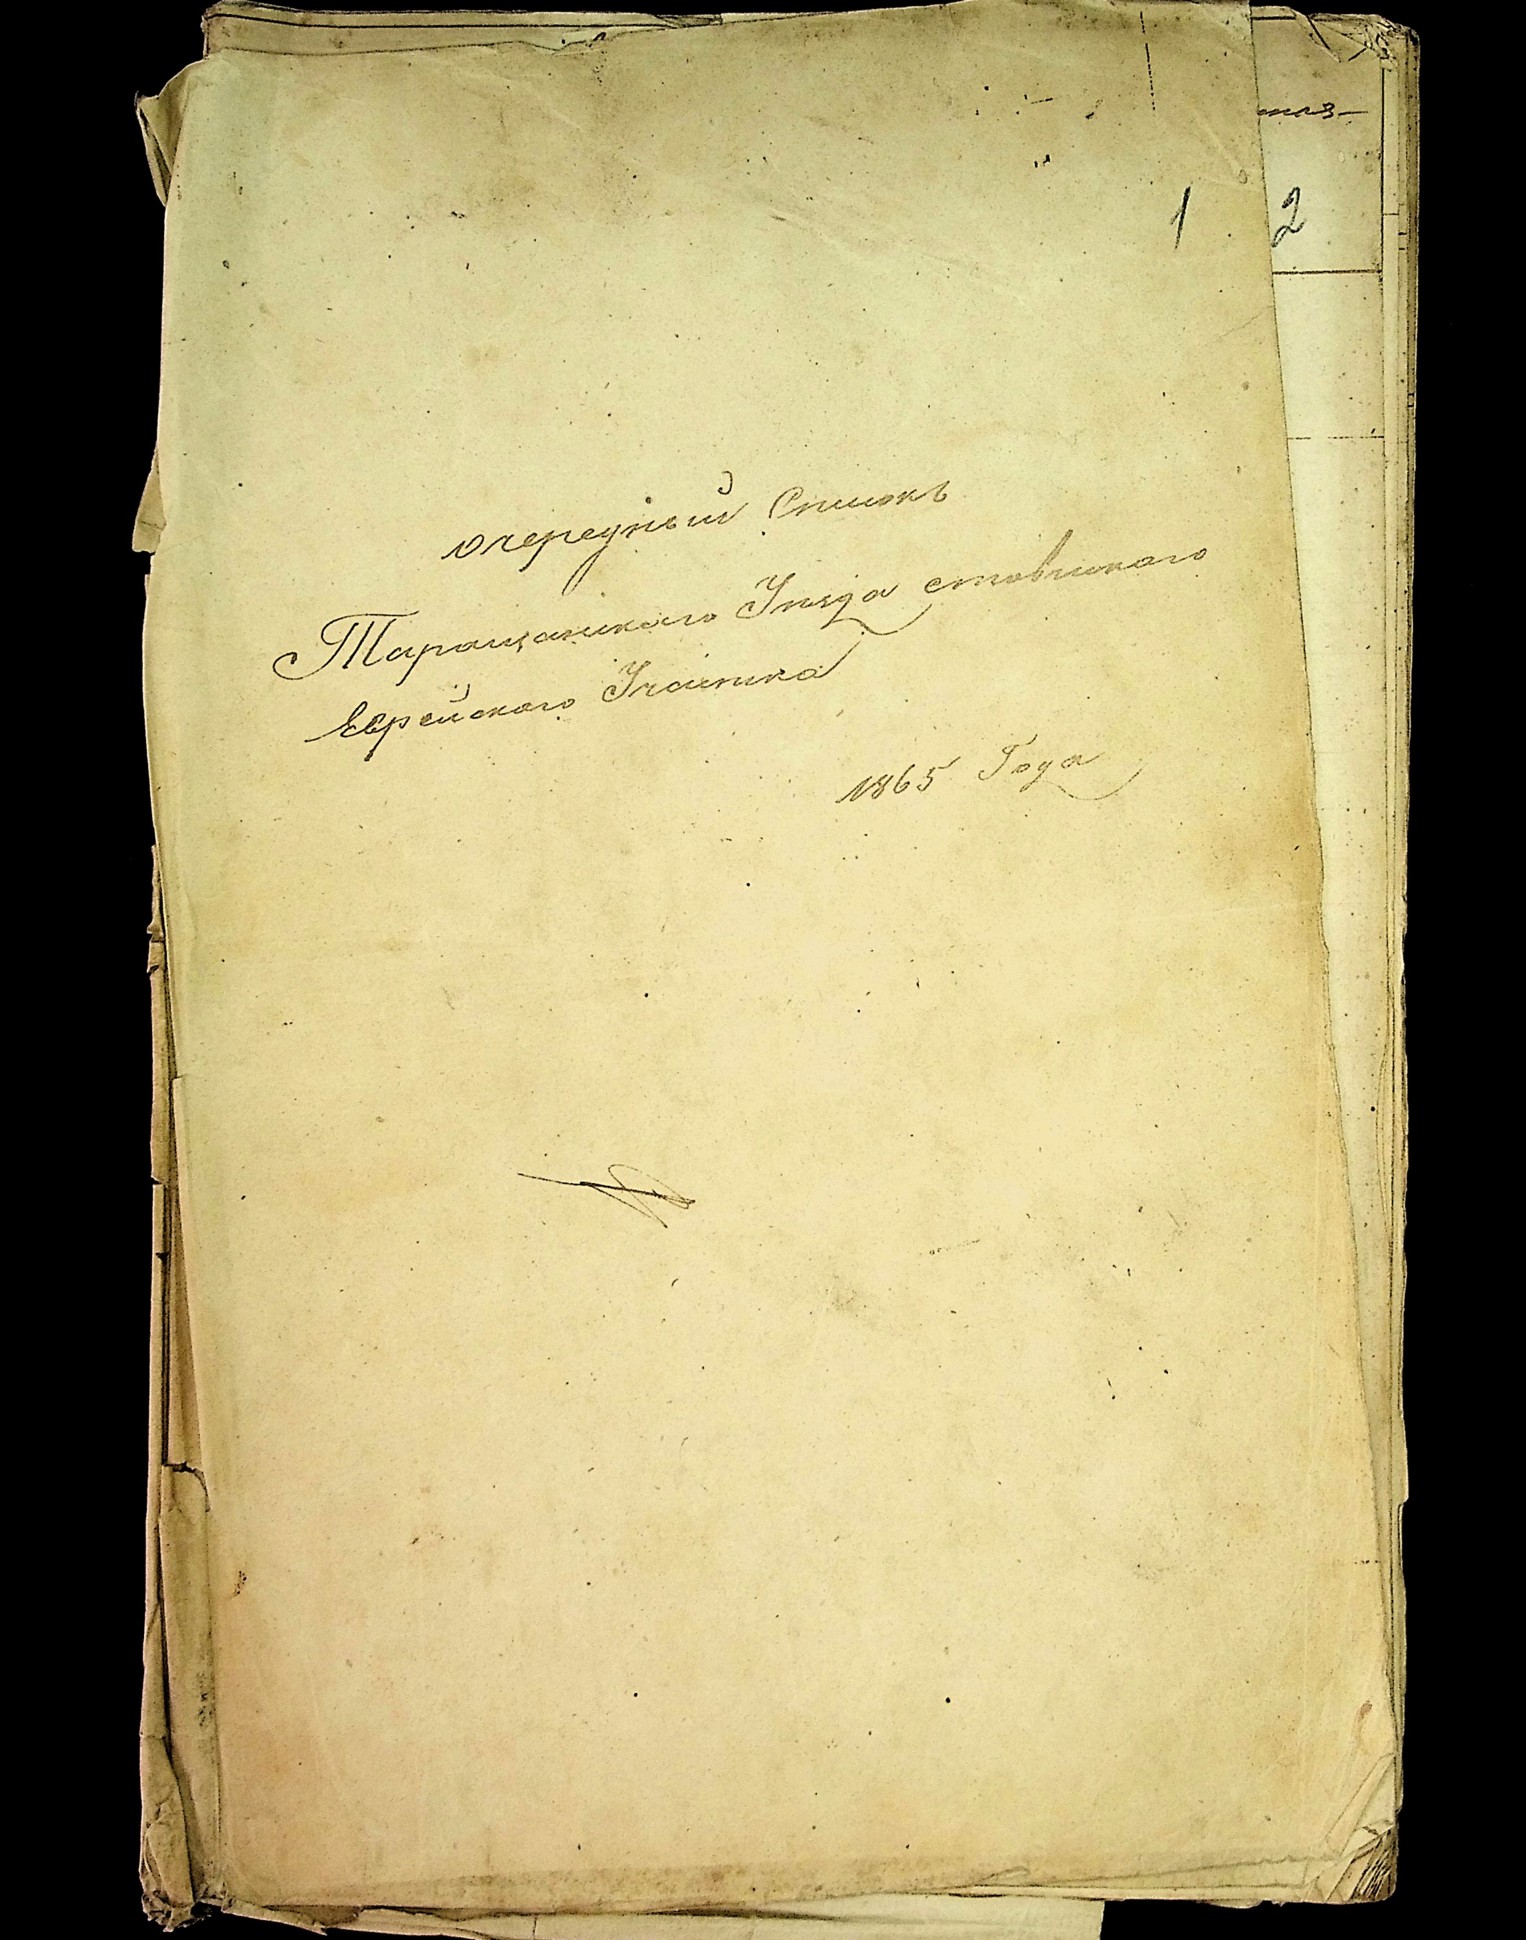 1
2
очередный Списокъ
Таращанскаго Уѣзда ставискаго
Еврейского Участка
1865 Года